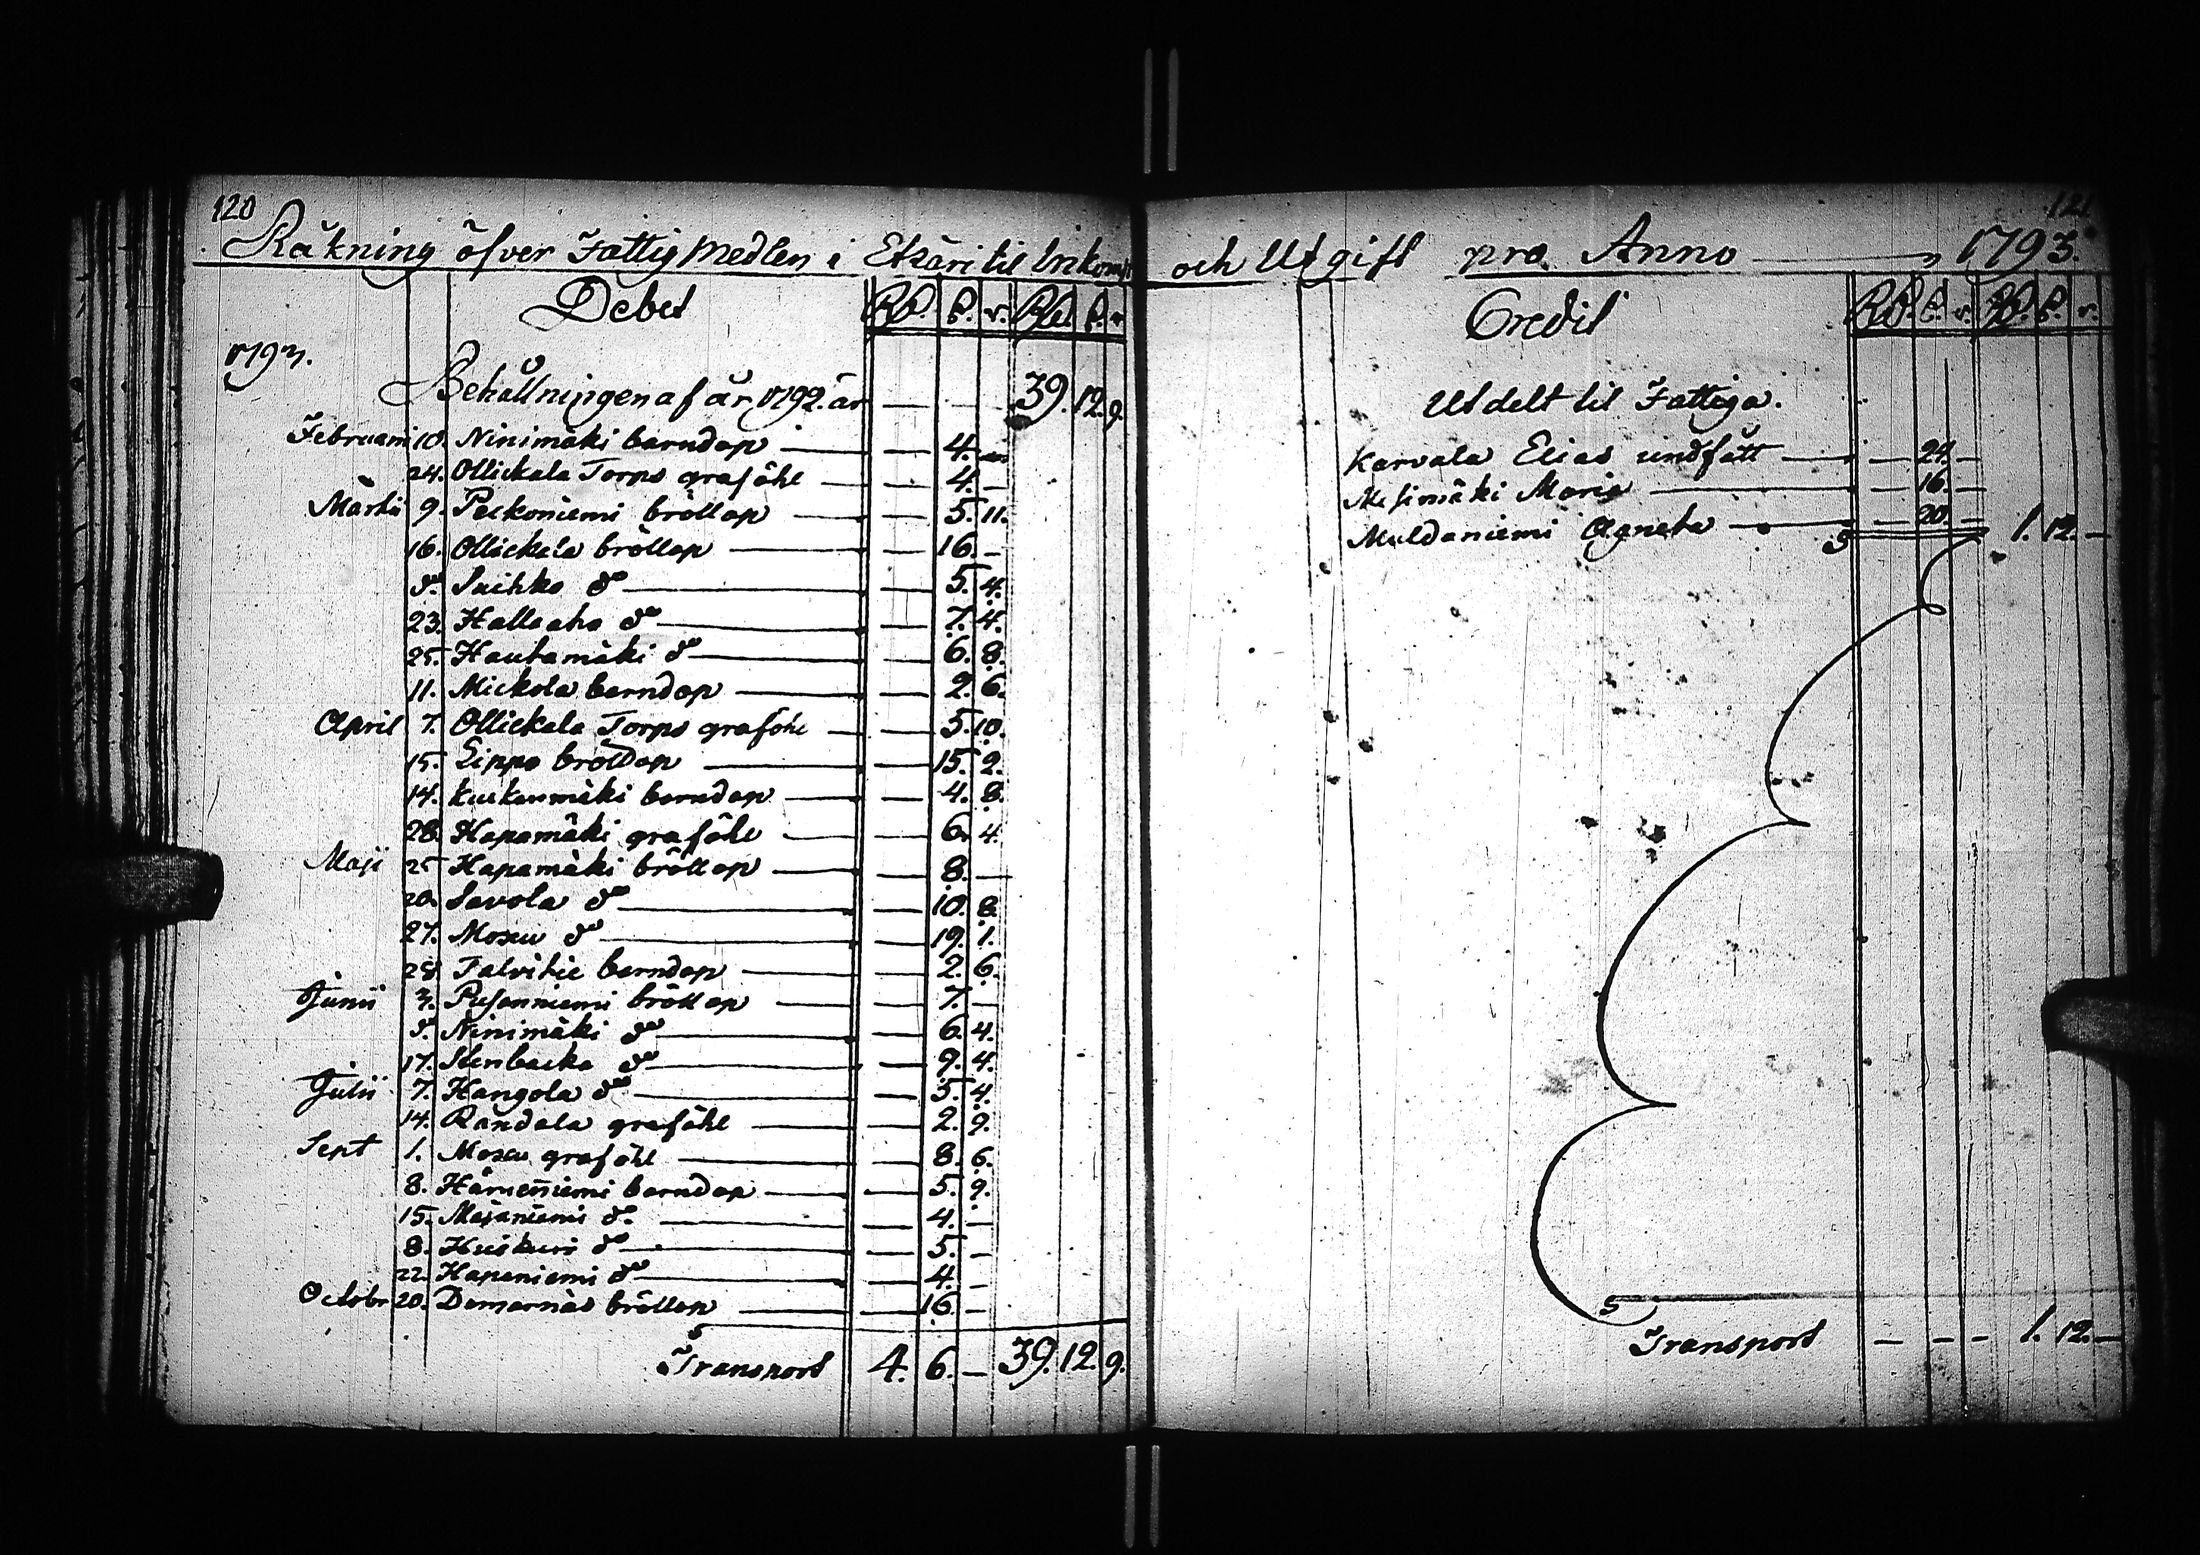 120
Räkning öfver Fattig Medlen i Etzäri til Inkomst
Debet Rd. ß. r. Rd. ß. r.
1793.
Behållningen af år 1792. är — — — 39. 12. 9.
Februarii 10. Ninimäki barndop — — 4. —
24. Ollickala Torps graföhl — — 4. —
Martii 9. Peckoniemi bröllop — — 5. 11.
16. Ollickala bröllop — — 16. —
d:o Suihko d:o — — 5. 4.
23. Halleaho d:o — — 7. 4.
25. Hautamäki d:o — — 6. 8.
11. Mickola barndop — — 2. 6.
April 7. Ollickala Torps graföhl — — 5. 10.
15. Lippo bröllop — — 15. 2.
14. Kuckonmäki barndop — — 4. 8.
28. Hapamäki graföhl — — 6. 4.
Maji 25 Hapamäki bröllop — — 8. —
20. Savola d:o — — 10. 8.
27. Moxu d:o — — 19. 1.
28. Talvitie barndop — — 2. 6.
Junii 3. Pusanniemi bröllop — — 7. —
d:o Ninimäki d:o — — 6. 4.
17. Stenbacka d:o — — 9. 4.
Julii 7. Hangola d:o — — 5. 4.
14. Randala graföhl — — 2. 9.
Sept 1. Moxu graföhl — — 8. 6.
8. Härueñiemi barndop — — 5. 9.
15. Majaniemi d:o — — 4. —
8. Huskuri d:o — — 5. —
22. Hapaniemi d:o — — 4. —
Octobr 20. Domarnäs bröllop — — 16. —
Transport 4. 6. — 39. 12. 9.
121
och Utgift pro Anno — 1793.
Credit Rd. ß. r. Rd. ß. r.
Utdelt til Fattiga.
Karvala Elias undfått — — 24. —
Mesimäki Maria — — 16. —
Muldaniemi Agneta — — 20. — 1. 12. —
Transport — — — 1. 12. —